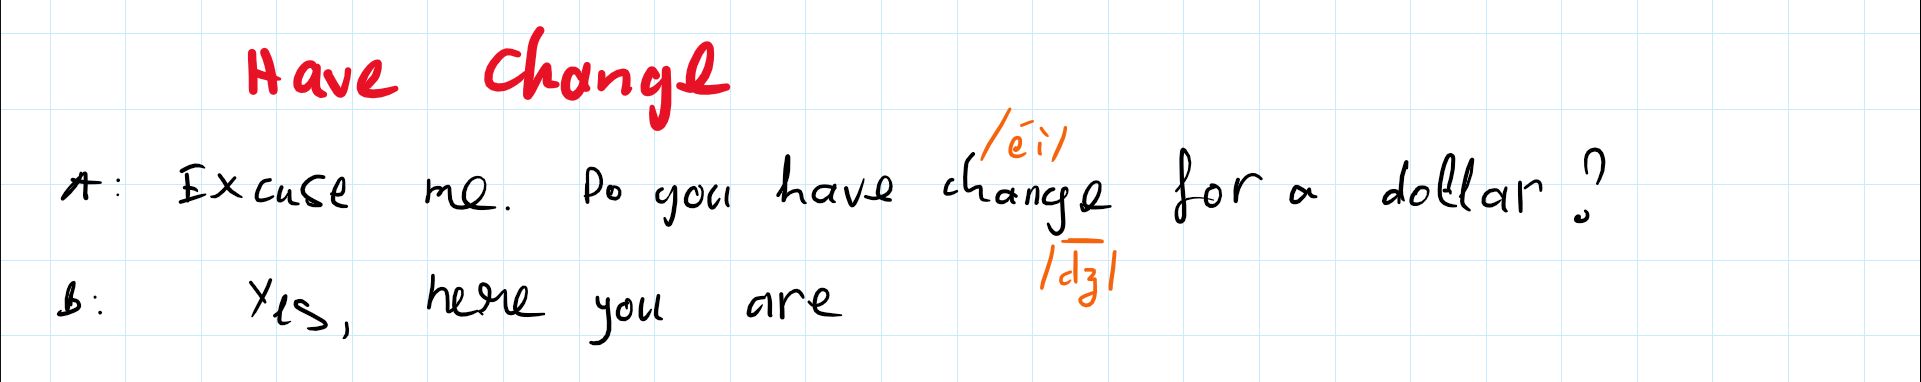 Have Change
/éi/
A: Excuse me. Do you have change for a dollar?
/dʒ/
B: Yes, here you are